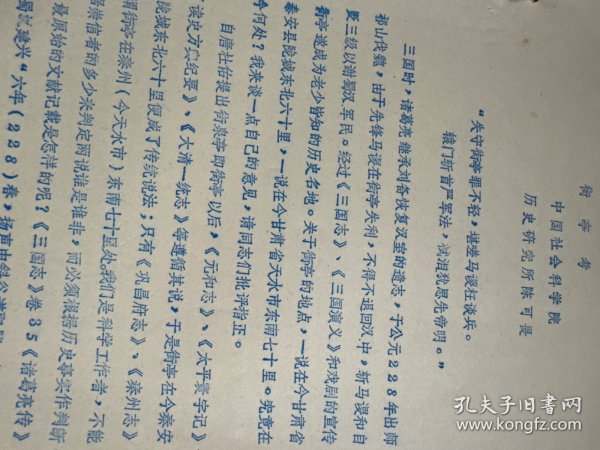 街亭考
中国社会科学院
历史研究所陈可畏
“失守街亭罪不轻，堪嗟马谡枉谈兵。
辕门斩首严军法，拭泪犹思先帝明。”
三国时，诸葛亮继承刘备恢复汉室的遗志，于公元228年出师
祁山伐魏，由于先锋马谡在街亭失利，不得不退回汉中，斩马谡和自
贬三级以谢蜀汉军民。经过《三国志》、《三国演义》和戏剧的宣传
街亭遂成为老少皆知的历史名地。关于街亭的地点，一说在今甘肃省
秦安县陇城东北六十里，一说在今甘肃省天水市东南七十里。究竟在
今何处？我来谈一点自己的意见，请同志们批评指正。
自唐杜佑提出街泉亭即街亭以后，《元和志》、《太平寰宇记》
《读史方舆纪要》、《大清一统志》等遵循其说，于是街亭在今秦安
陇城东北六十里便成了传统说法；只有《巩昌府志》、《秦州志》
谓街亭在秦州（今天水市）东南七十里处。我们是科学工作者，不能
据崇信者的多少来判定两说谁是谁非，而必须根据历史事实作判断
最原始的文献记载是怎样的呢？《三国志》卷35《诸葛亮传》
蜀汉建兴“六年（228）春，扬声由斜谷道取
孔夫子旧书网
www.kongfz.com